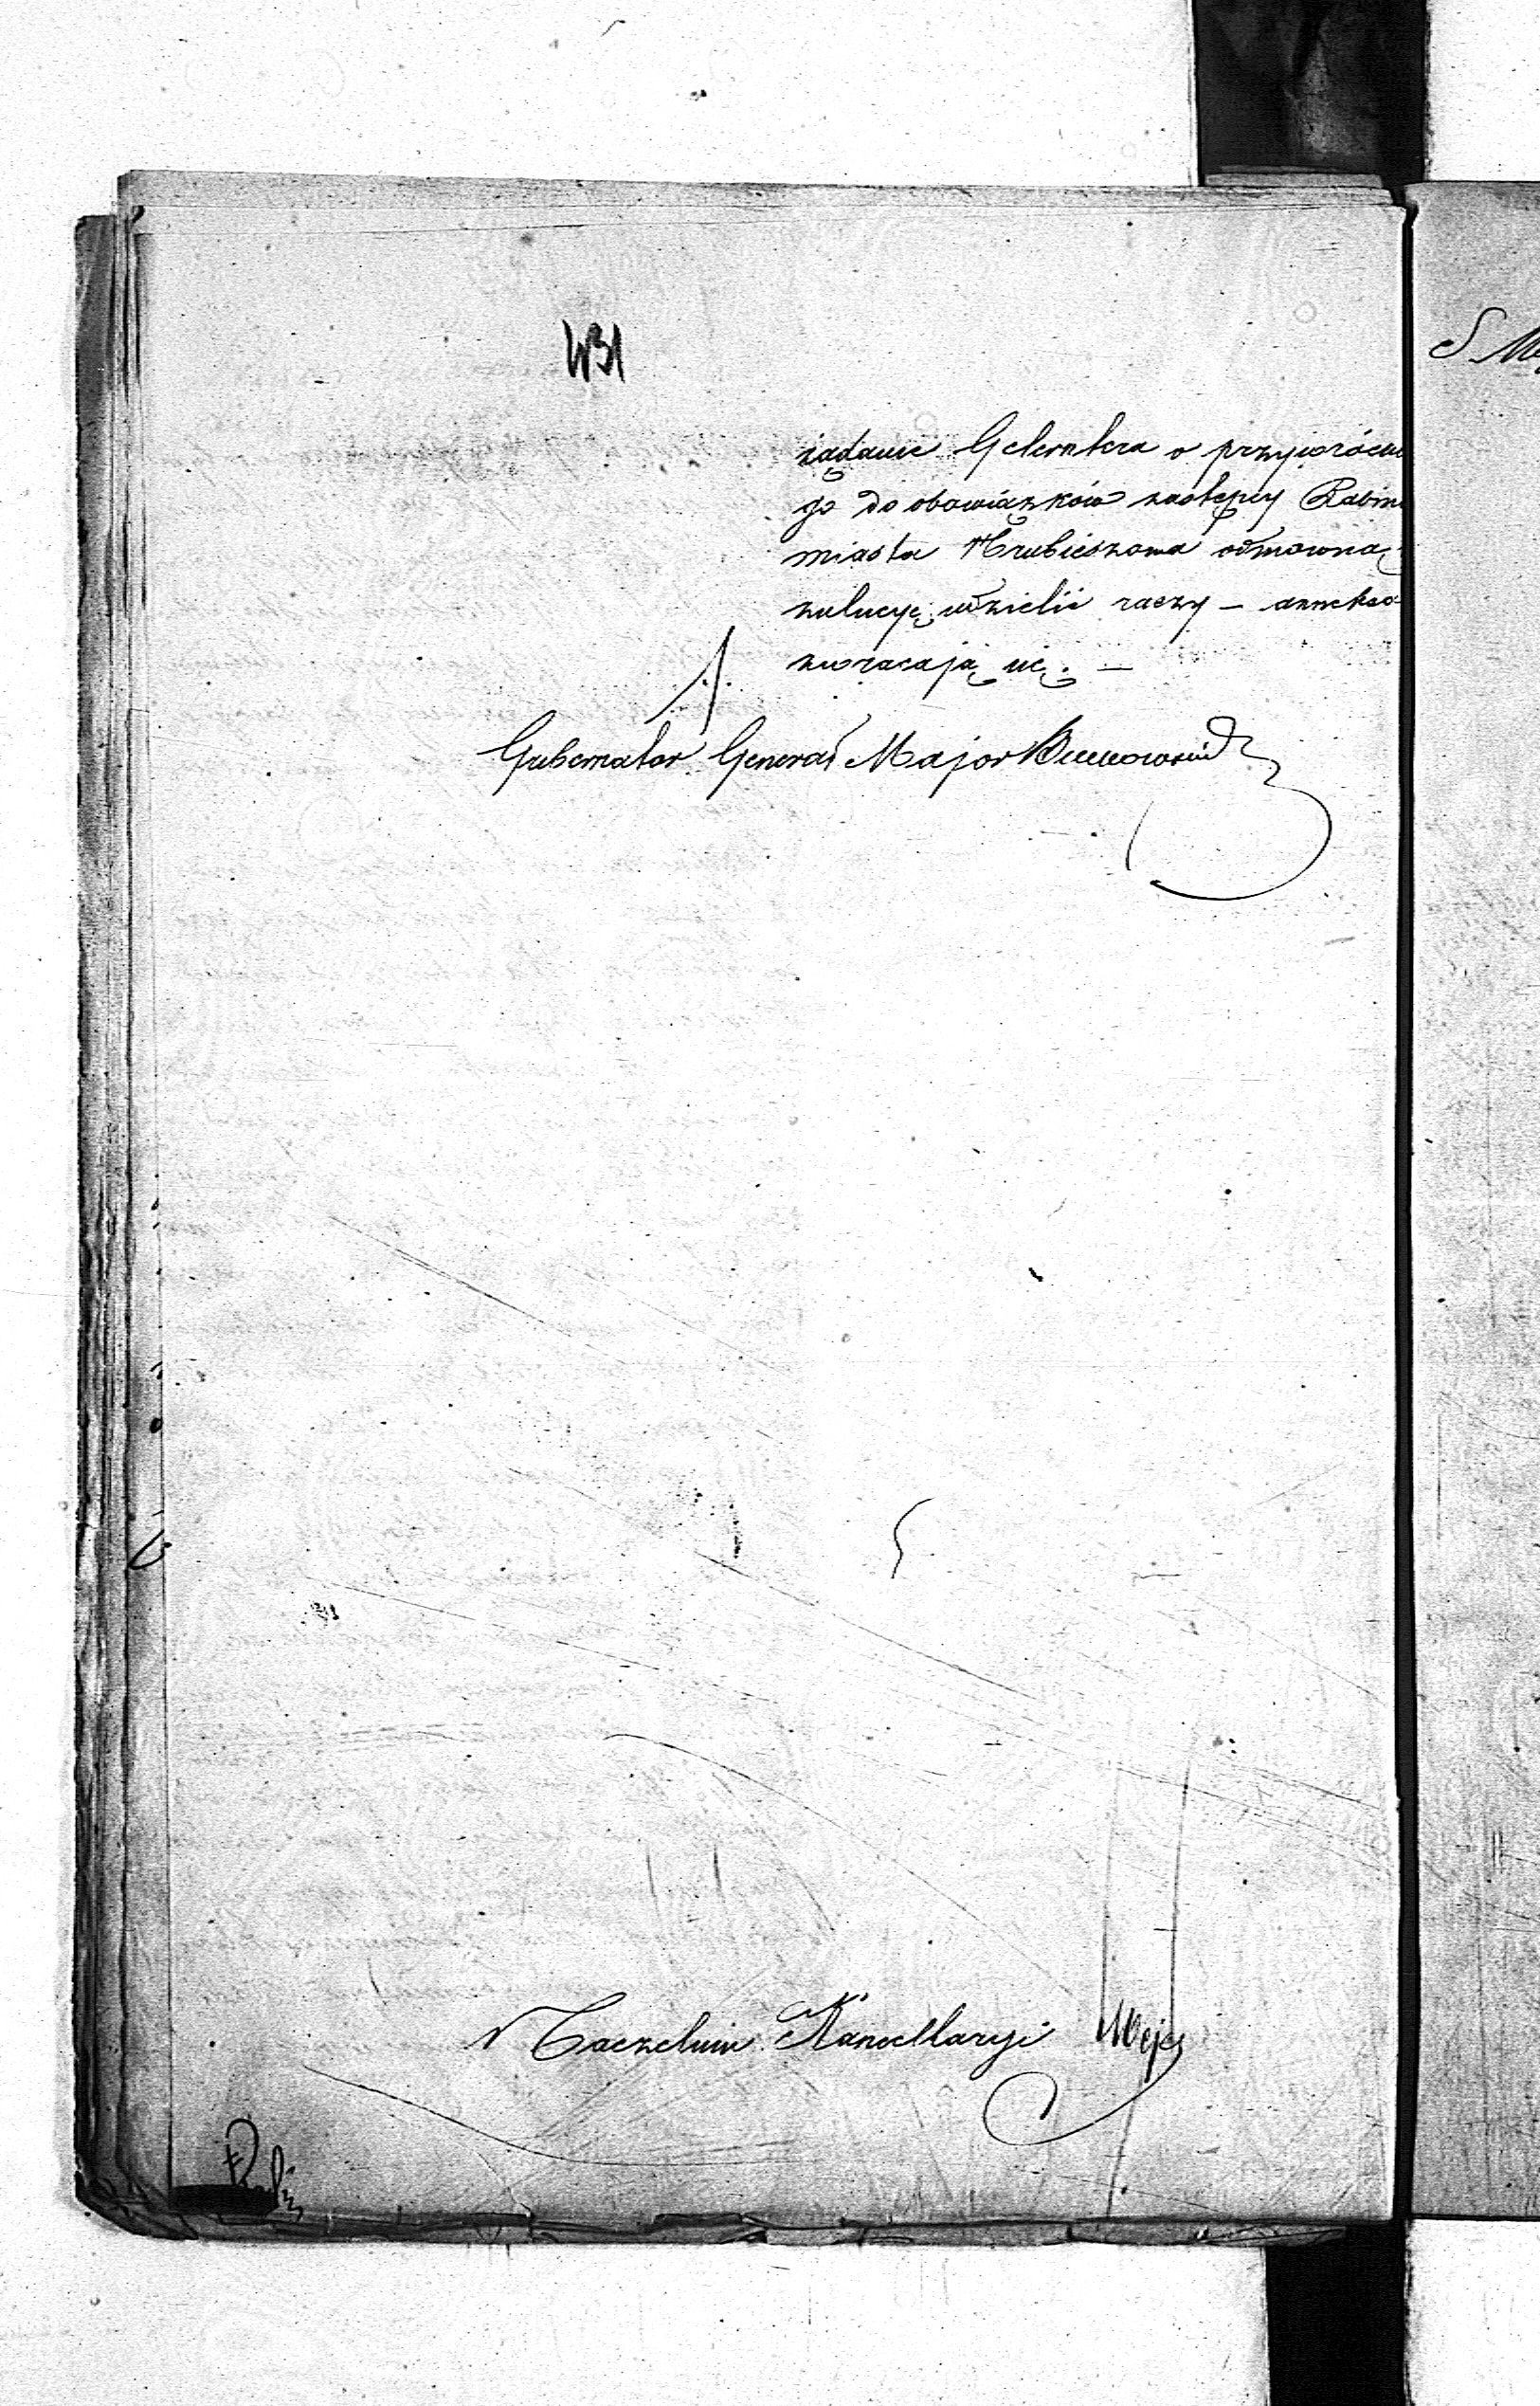 431
żądanie Gelerntera o przywróceni
go do obowiązków zastępcy Rabin
miasta Hrubieszowa odmowną
zulucyę udzielić raczy – anneksa
zwracają się. –
Gubernator Generał Major
Naczelnik Kancellaryi
S